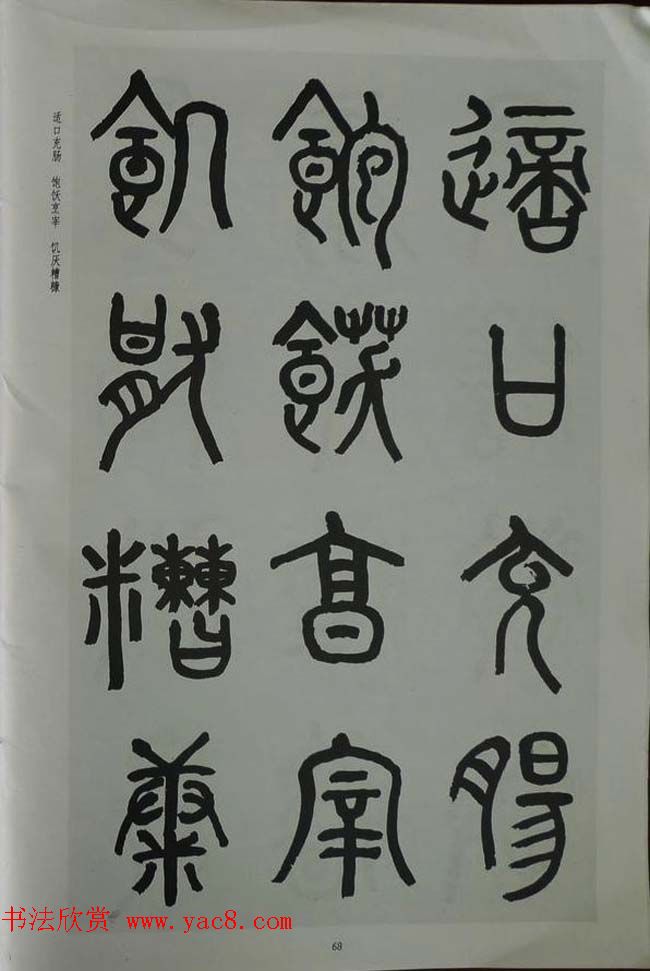 適口充腸
飽飫亨宰
飢猒糟糠
适口充肠 饱饫烹宰 饥厌糟糠
书法欣赏 www.yac8.com
68